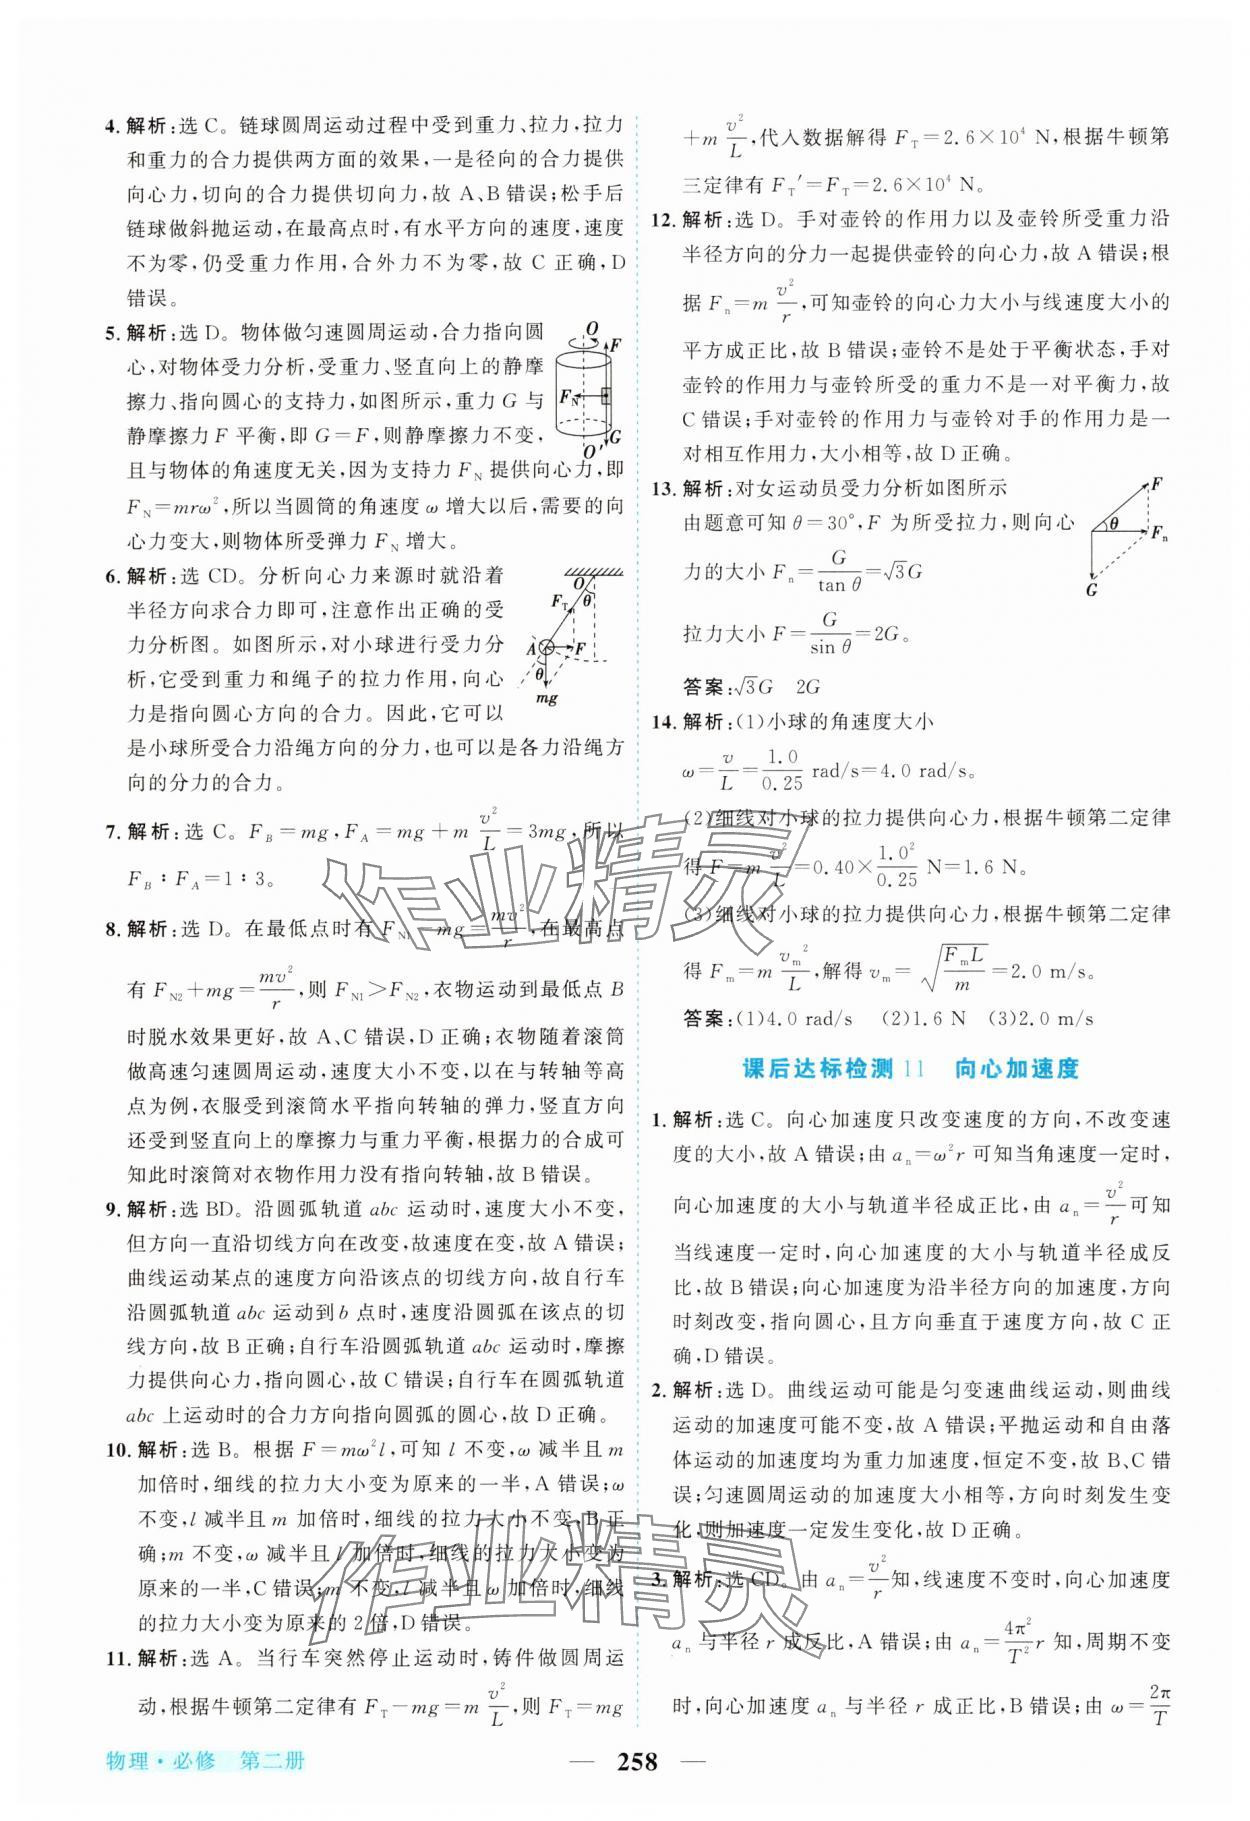 4. 解析:选 C。链球圆周运动过程中受到重力、拉力,拉力
和重力的合力提供两方面的效果,一是径向的合力提供
向心力,切向的合力提供切向力,故 A、B 错误;松手后
链球做斜抛运动,在最高点时,有水平方向的速度,速度
不为零,仍受重力作用,合外力不为零,故 C 正确,D
错误。
5. 解析:选 D。物体做匀速圆周运动,合力指向圆
心,对物体受力分析,受重力、竖直向上的静摩
擦力、指向圆心的支持力,如图所示,重力 G 与
静摩擦力 F 平衡,即 G=F,则静摩擦力不变,
且与物体的角速度无关,因为支持力 F_N 提供向心力,即
F_N=mrω²,所以当圆筒的角速度 ω 增大以后,需要的向
心力变大,则物体所受弹力 F_N 增大。
O
F
F_N
G
O′
6. 解析:选 CD。分析向心力来源时就沿着
半径方向求合力即可,注意作出正确的受
力分析图。如图所示,对小球进行受力分
析,它受到重力和绳子的拉力作用,向心
力是指向圆心方向的合力。因此,它可以
是小球所受合力沿绳方向的分力,也可以是各力沿绳方
向的分力的合力。
O
θ
F_T
A
F
θ
mg
7. 解析:选 C。F_B=mg,F_A=mg+m v²/L=3mg,所以
F_B∶F_A=1∶3。
8. 解析:选 D。在最低点时有 F_N1-mg=mv²/r,在最高点
有 F_N2+mg=mv²/r,则 F_N1>F_N2,衣物运动到最低点 B
时脱水效果更好,故 A、C 错误,D 正确;衣物随着滚筒
做高速匀速圆周运动,速度大小不变,以与转轴等高点
为例,衣服受到滚筒水平指向转轴的弹力,竖直方向
还受到竖直向上的摩擦力与重力平衡,根据力的合成可
知此时滚筒对衣物作用力没有指向转轴,故 B 错误。
9. 解析:选 BD。沿圆弧轨道 abc 运动时,速度大小不变,
但方向一直沿切线方向在改变,故速度在变,故 A 错误;
曲线运动某点的速度方向沿该点的切线方向,故自行车
沿圆弧轨道 abc 运动到 b 点时,速度沿圆弧在该点的切
线方向,故 B 正确;自行车沿圆弧轨道 abc 运动时,摩擦
力提供向心力,指向圆心,故 C 错误;自行车在圆弧轨道
abc 上运动时的合力方向指向圆弧的圆心,故 D 正确。
10. 解析:选 B。根据 F=mω²l,可知 l 不变,ω 减半且 m
加倍时,细线的拉力大小变为原来的一半,A 错误;ω
不变,l 减半且 m 加倍时,细线的拉力大小不变,B 正
确;m 不变,ω 减半且 l 加倍时,细线的拉力大小变为
原来的一半,C 错误;m 不变,l 减半且 ω 加倍时,细线
的拉力大小变为原来的 2 倍,D 错误。
11. 解析:选 A。当行车突然停止运动时,铸件做圆周运
动,根据牛顿第二定律有 F_T-mg=m v²/L,则 F_T=mg
+m v²/L,代入数据解得 F_T=2.6×10⁴ N,根据牛顿第
三定律有 F_T′=F_T=2.6×10⁴ N。
12. 解析:选 D。手对壶铃的作用力以及壶铃所受重力沿
半径方向的分力一起提供壶铃的向心力,故 A 错误;根
据 F_n=m v²/r,可知壶铃的向心力大小与线速度大小的
平方成正比,故 B 错误;壶铃不是处于平衡状态,手对
壶铃的作用力与壶铃所受的重力不是一对平衡力,故
C 错误;手对壶铃的作用力与壶铃对手的作用力是一
对相互作用力,大小相等,故 D 正确。
13. 解析:对女运动员受力分析如图所示
由题意可知 θ=30°,F 为所受拉力,则向心
力的大小 F_n=G/tan θ=√3G
拉力大小 F=G/sin θ=2G。
答案:√3G 2G
F
θ
F_n
G
14. 解析:(1)小球的角速度大小
ω=v/L=1.0/0.25 rad/s=4.0 rad/s。
(2)细线对小球的拉力提供向心力,根据牛顿第二定律
得 F=m v²/L=0.40×1.0²/0.25 N=1.6 N。
(3)细线对小球的拉力提供向心力,根据牛顿第二定律
得 F_m=m v_m²/L,解得 v_m=√(F_mL/m)=2.0 m/s。
答案:(1)4.0 rad/s (2)1.6 N (3)2.0 m/s
课后达标检测 11 向心加速度
1. 解析:选 C。向心加速度只改变速度的方向,不改变速
度的大小,故 A 错误;由 a_n=ω²r 可知当角速度一定时,
向心加速度的大小与轨道半径成正比,由 a_n=v²/r 可知
当线速度一定时,向心加速度的大小与轨道半径成反
比,故 B 错误;向心加速度为沿半径方向的加速度,方向
时刻改变,指向圆心,且方向垂直于速度方向,故 C 正
确,D 错误。
2. 解析:选 D。曲线运动可能是匀变速曲线运动,则曲线
运动的加速度可能不变,故 A 错误;平抛运动和自由落
体运动的加速度均为重力加速度,恒定不变,故 B、C 错
误;匀速圆周运动的加速度大小相等,方向时刻发生变
化,则加速度一定发生变化,故 D 正确。
3. 解析:选 CD。由 a_n=v²/r知,线速度不变时,向心加速度
a_n 与半径 r 成反比,A 错误;由 a_n=4π²/T² r 知,周期不变
时,向心加速度 a_n 与半径 r 成正比,B 错误;由 ω=2π/T
作业精灵
作业精灵
物理·必修 第二册
258